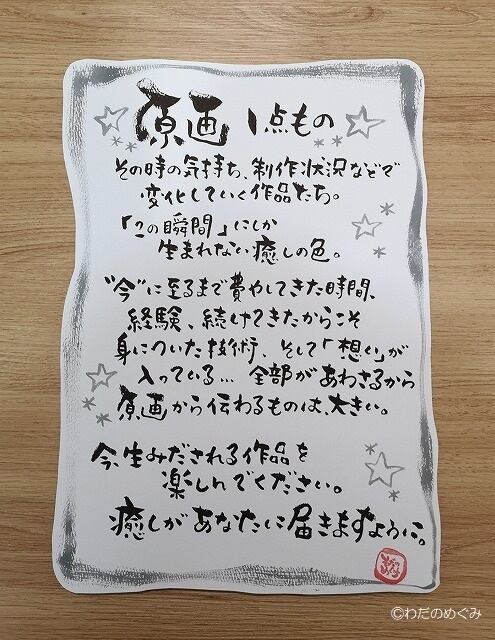 原画 1点もの
その時の気持ち、制作状況などで
変化していく作品たち。
「この瞬間」にしか
生まれない癒しの色。
"今"に至るまで費やしてきた時間、
経験、続けてきたからこそ
身についた技術、そして「想い」が
入っている… 全部があわさるから
原画から伝わるものは、大きい。
今、生みだされる作品を
楽しんでください。
癒しがあなたに届きますように。
©わだのめぐみ